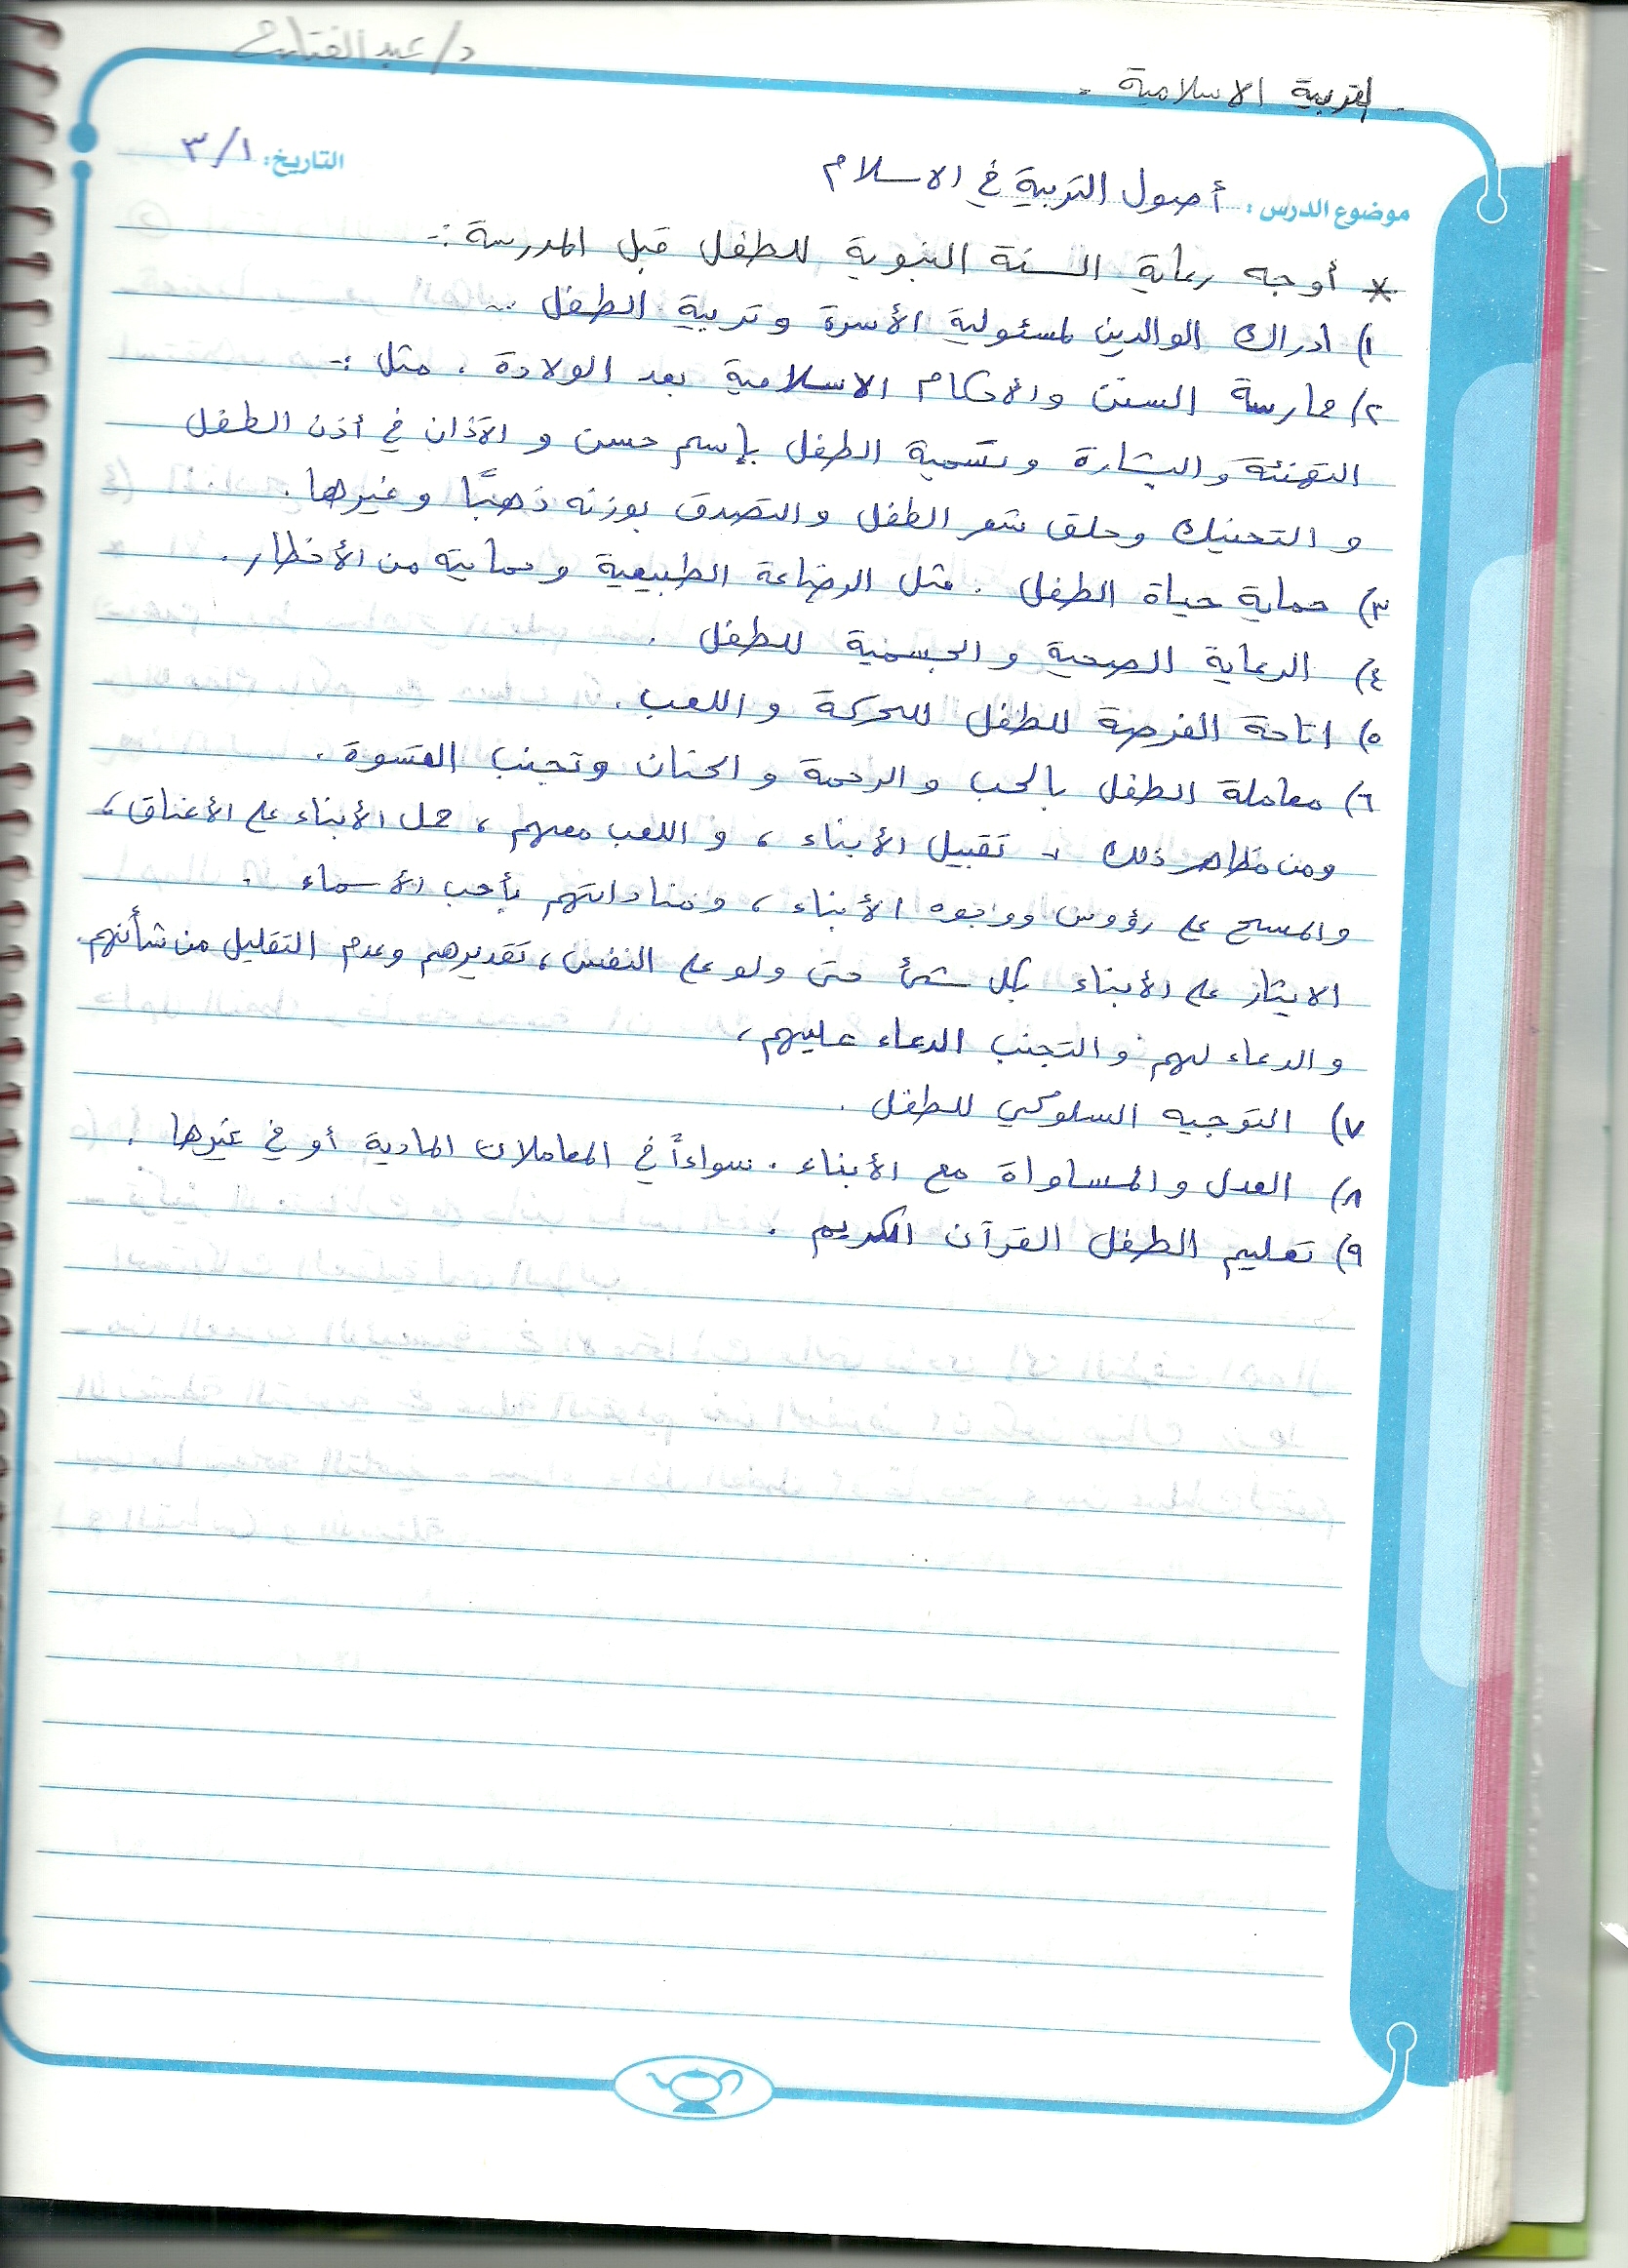 د/عبدالفتاح
التربية الاسلامية .
التاريخ: ٣/١
موضوع الدرس: أصول التربية في الاسلام
* أوجه رعاية السنة النبوية للطفل قبل المدرسة :-
١) ادراك الوالدين لمسئولية الأسرة وتربية الطفل ..
٢/ ممارسة السنن والأحكام الاسلامية بعد الولادة . مثل :-
التهنئة والبشارة وتسمية الطفل بإسم حسن و الآذان في أذن الطفل
و التحنيك وحلق شعر الطفل والتصدق بوزنه ذهبًا وغيرها .
٣) حماية حياة الطفل . مثل الرضاعة الطبيعية وحمايته من الأخطار .
٤) الرعاية الصحية والجسمية للطفل .
٥) اتاحة الفرصة للطفل للحركة واللعب .
٦) معاملة الطفل بالحب والرحمة والحنان وتجنب القسوة .
ومن مظاهر ذلك :- تقبيل الأبناء ، و اللعب معهم ، حمل الأبناء على الأعناق ،
والمسح على رؤوس ووجوه الأبناء ، ومناداتهم بأحب الأسماء .
الايثار على الأبناء بكل شئ حتى ولو على النفس ، تقديرهم وعدم التقليل من شأنهم .
والدعاء لهم والتجنب الدعاء عليهم ،
٧) التوجيه السلوكي للطفل .
٨) العدل والمساواة مع الأبناء . سواءاً في المعاملات المادية أو في غيرها .
٩) تعليم الطفل القرآن الكريم .